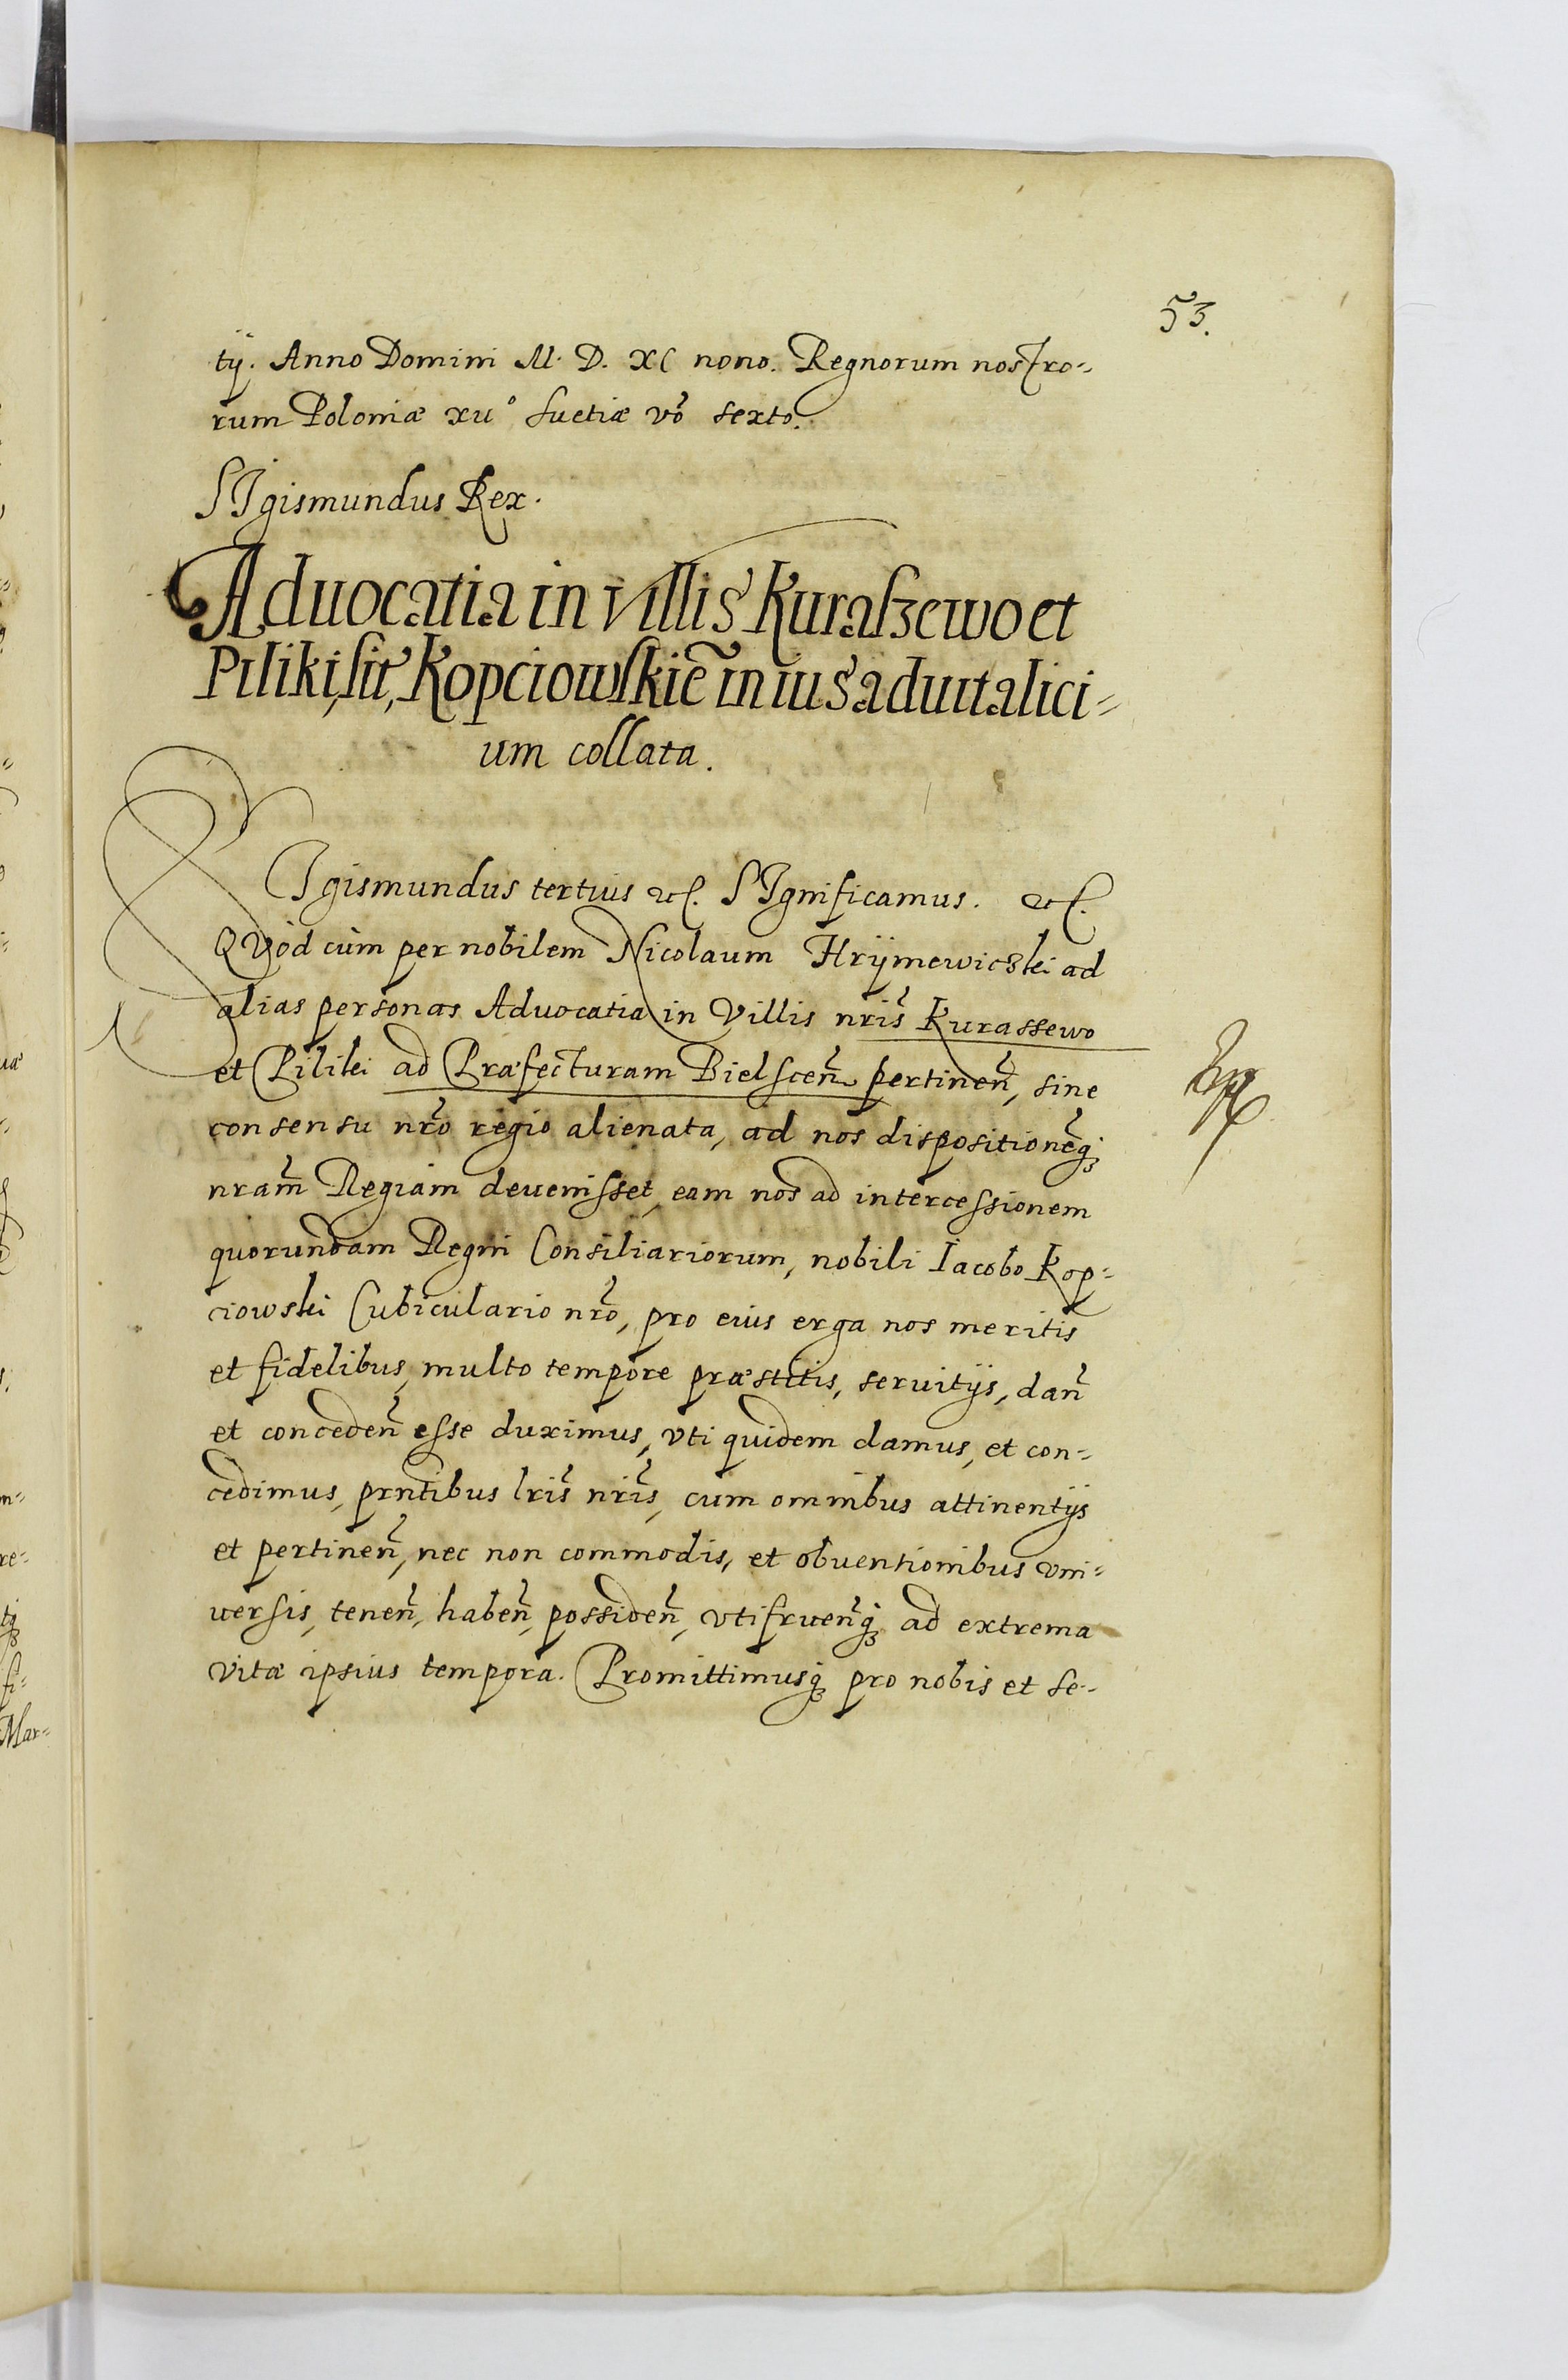 53.
tÿ. Anno Domini M. D. XC nono. Regnorum nostro-
rum Poloniæ xii° Suetiæ vo̅ sexto.
SIgismundus Rex.
Aduocatia in villis Kuraszewo et
Piliki, sit, Kopciowskie̅ in ius aduitalici-
um collata.
SIgismundus tertius etc. SIgnificamus. etc.
QVòd cùm per nobilem Nicolaum Hrÿmewicski ad
alias personas Aduocatia in Villis nris̅ Kurassewo
et Piliki ad Præfecturam Bielscen̅ pertinen̅, sine
consensu nro̅ regio alienata, ad nos dispositione̅q;
nram̅ Regiam deuenisset, eam nos ad intercessionem
quorundam Regni Consiliariorum, nobili Iacobo Kop-
ciowski Cubiculario nro̅, pro eius erga nos meritis
et fidelibus, multo tempore præstitis, seruitÿs, dan̅
et conceden̅ esse duximus, vti quidem damus, et con-
cedimus, prnt̅ibus lris̅ nris̅, cum omnibus attinentÿs
et pertinen̅, nec non commodis, et obuentionibus vni-
uersis, tenen̅, haben̅, possiden̅, vtifruen̅q; ad extrema
vitæ ipsius tempora. Promittimusq; pro nobis et se-